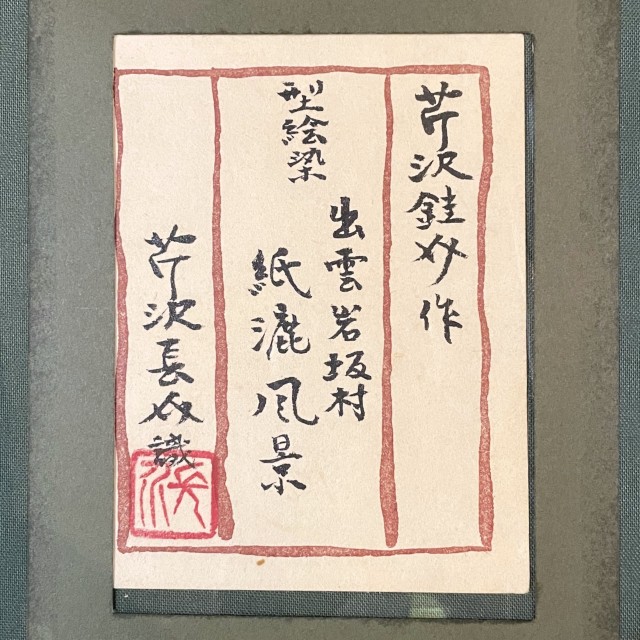 芹沢銈介作
型絵染
出雲岩坂村
紙漉風景
芹沢長介識